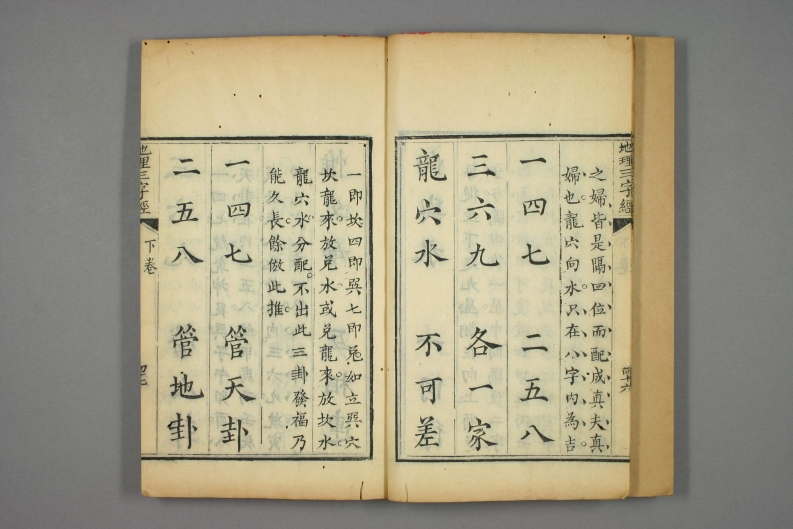 地理三字經
之婦皆是隔四位而配成真夫真
婦也龍穴向水只在八字內為吉
一四七　二五八
三六九　各一家
龍穴水　不可差
一即坎四即巽七即兌如立巽穴
坎龍來放兌水或兌龍來放坎水
龍穴水分配不出此三卦發福乃
能久長餘倣此推
一四七　管天卦
二五八　管地卦
地理三字經
下卷